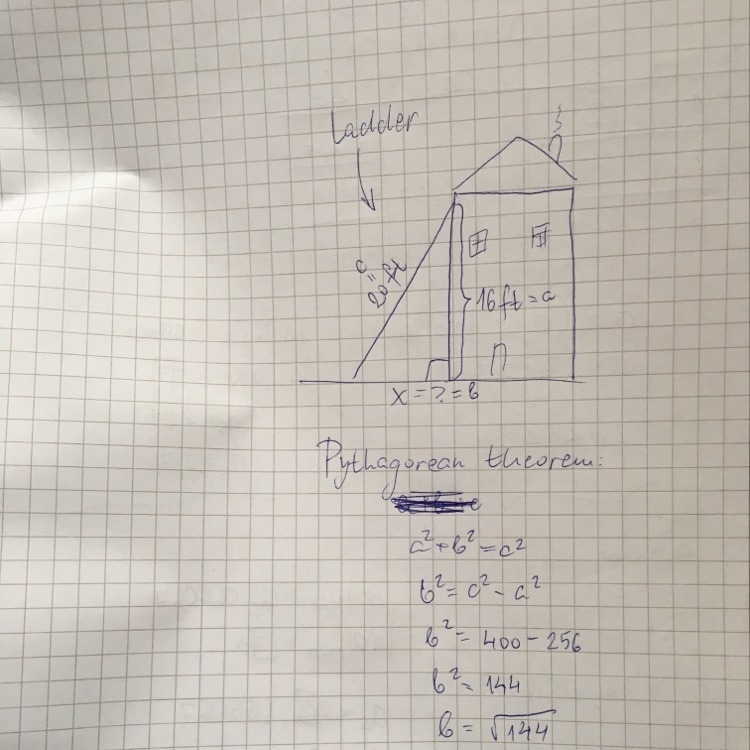 Ladder
c
=
20 ft
16ft = a
x = ? = b
Pythagorean theorem:
a² + b² = c²
b² = c² - a²
b² = 400 - 256
b² = 144
b = √144